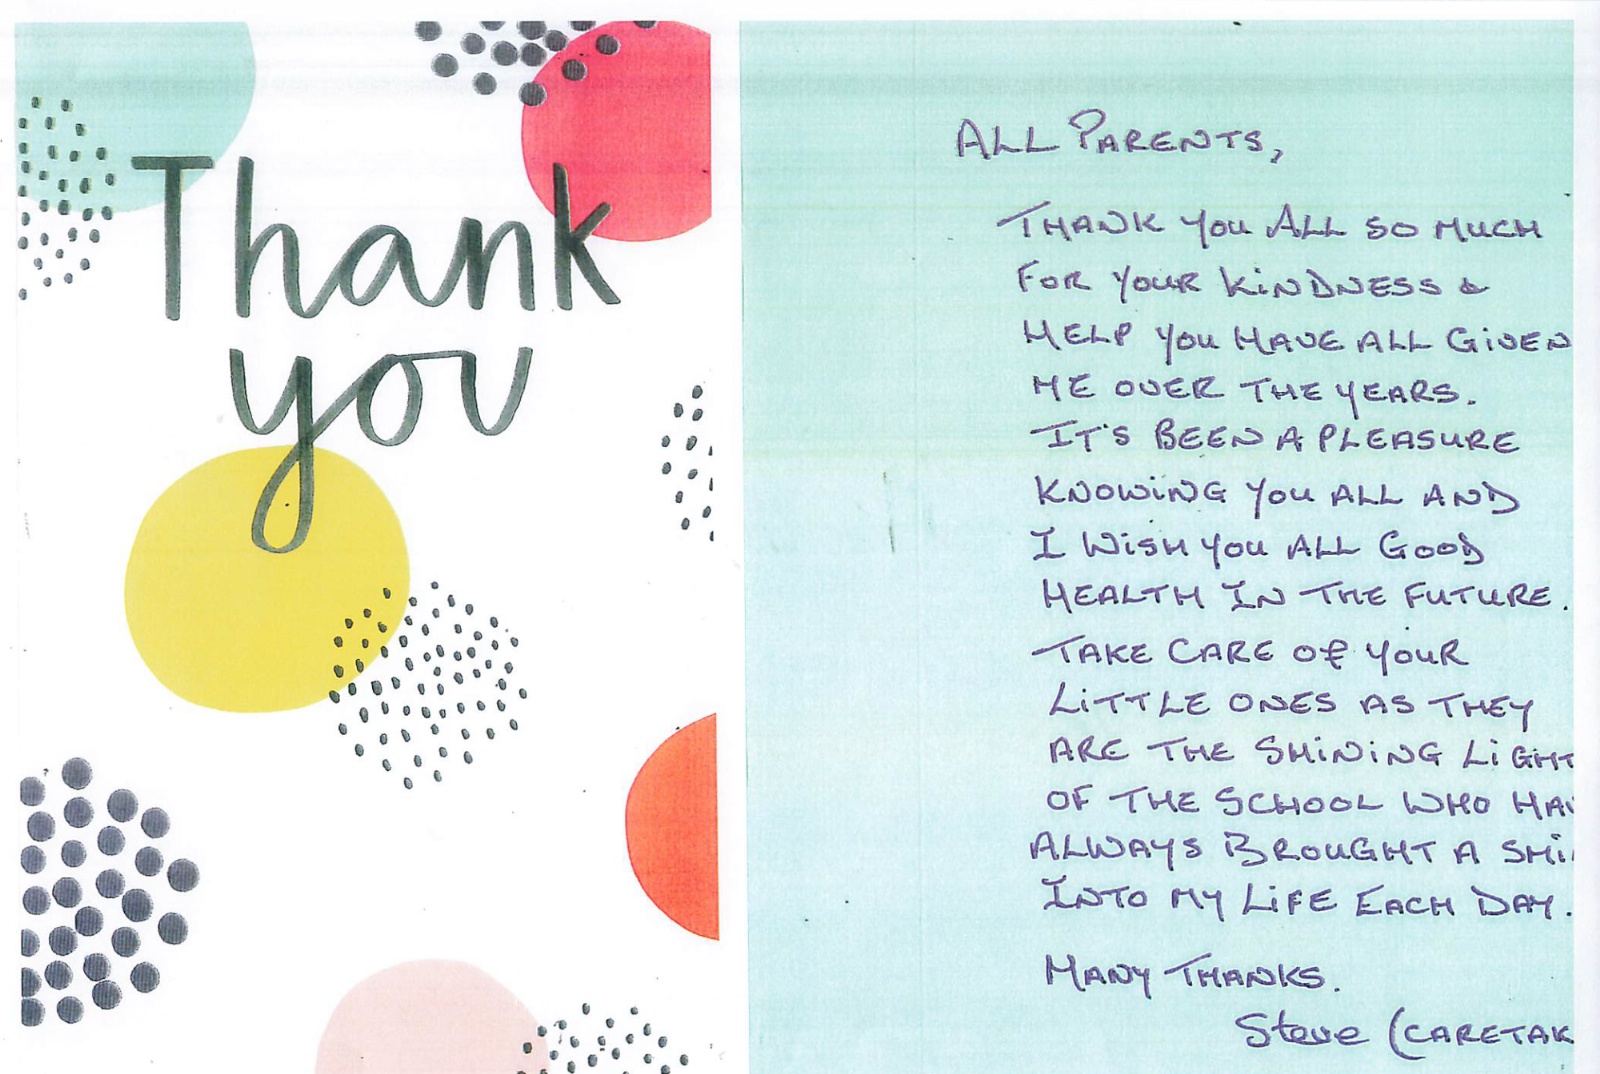 Thank
you
ALL PARENTS,
THANK YOU ALL SO MUCH
FOR YOUR KINDNESS &
HELP YOU HAVE ALL GIVEN
ME OVER THE YEARS.
IT'S BEEN A PLEASURE
KNOWING YOU ALL AND
I WISH YOU ALL GOOD
HEALTH IN THE FUTURE.
TAKE CARE OF YOUR
LITTLE ONES AS THEY
ARE THE SHINING LIGHT
OF THE SCHOOL WHO HAV
ALWAYS BROUGHT A SMI
INTO MY LIFE EACH DAY.
MANY THANKS.
Steve (CARETAK